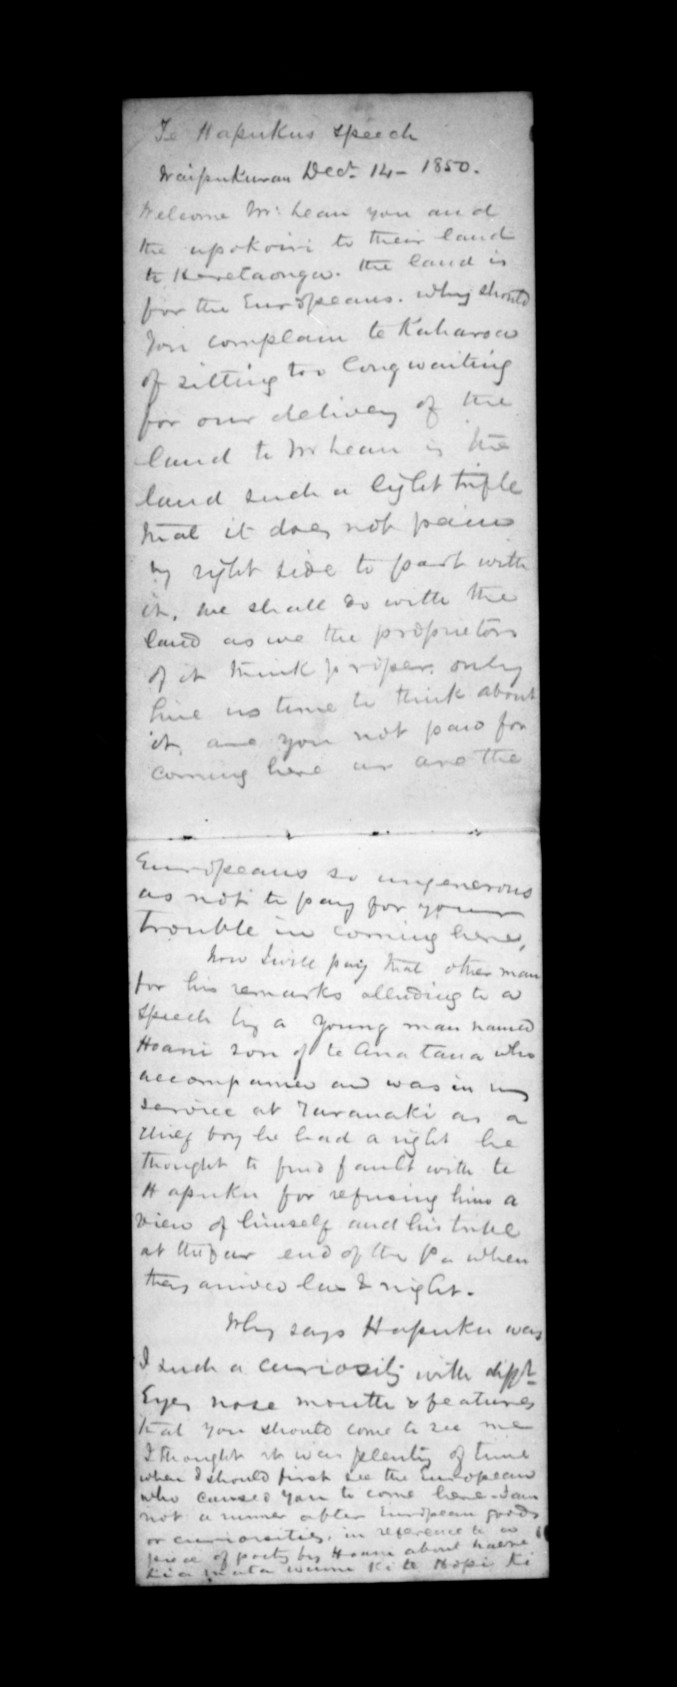 Te Hapukus speech
Waipukurau Decr. 14 - 1850.
Welcome Mr. Lean you and
the upokoiri to their land
te Haretaonga. the land is
for the Europeans. why should
You complain te Kaharoa
of sitting too long waiting
for our delivery of the
land to Mr Lean is the
land such a light trifle
that it does not pain
my right side to part with
it, we shall do with the
land as we the proprietors
of it think proper. only
Give us time to think about
it, are you not paid for
coming here or are the
Europeans so ungenerous
as not to pay for your
trouble in coming here,
Now I will pay that other man
for his remarks alluding to a
speech by a young man named
Hoani son of te Anatana who
accompanied and was in my
service at Taranaki as a
chief boy he had a right he
thought to find fault with te
Hapuku for refusing him a
view of himself and his tribe
at the far end of the Pa when
they arrived last night.
Why says Hapuku was
I such a curiosity with difft
Eyes nose mouth & features
that you should come to see me
I thought it was plenty of time
when I should first see the European
who caused you to come here. I am
not a runner after European goods
or curiosities. in reference to a
piece of poetry by Hoani about haere
kia mata ki te Hopi ki